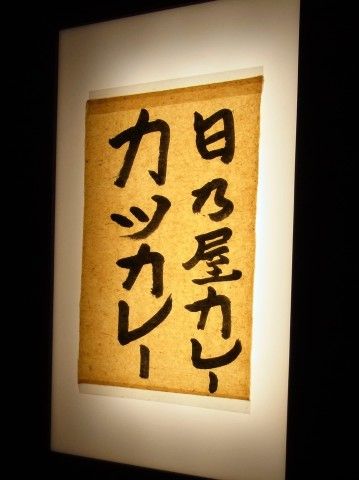 日乃屋カレー
カツカレー